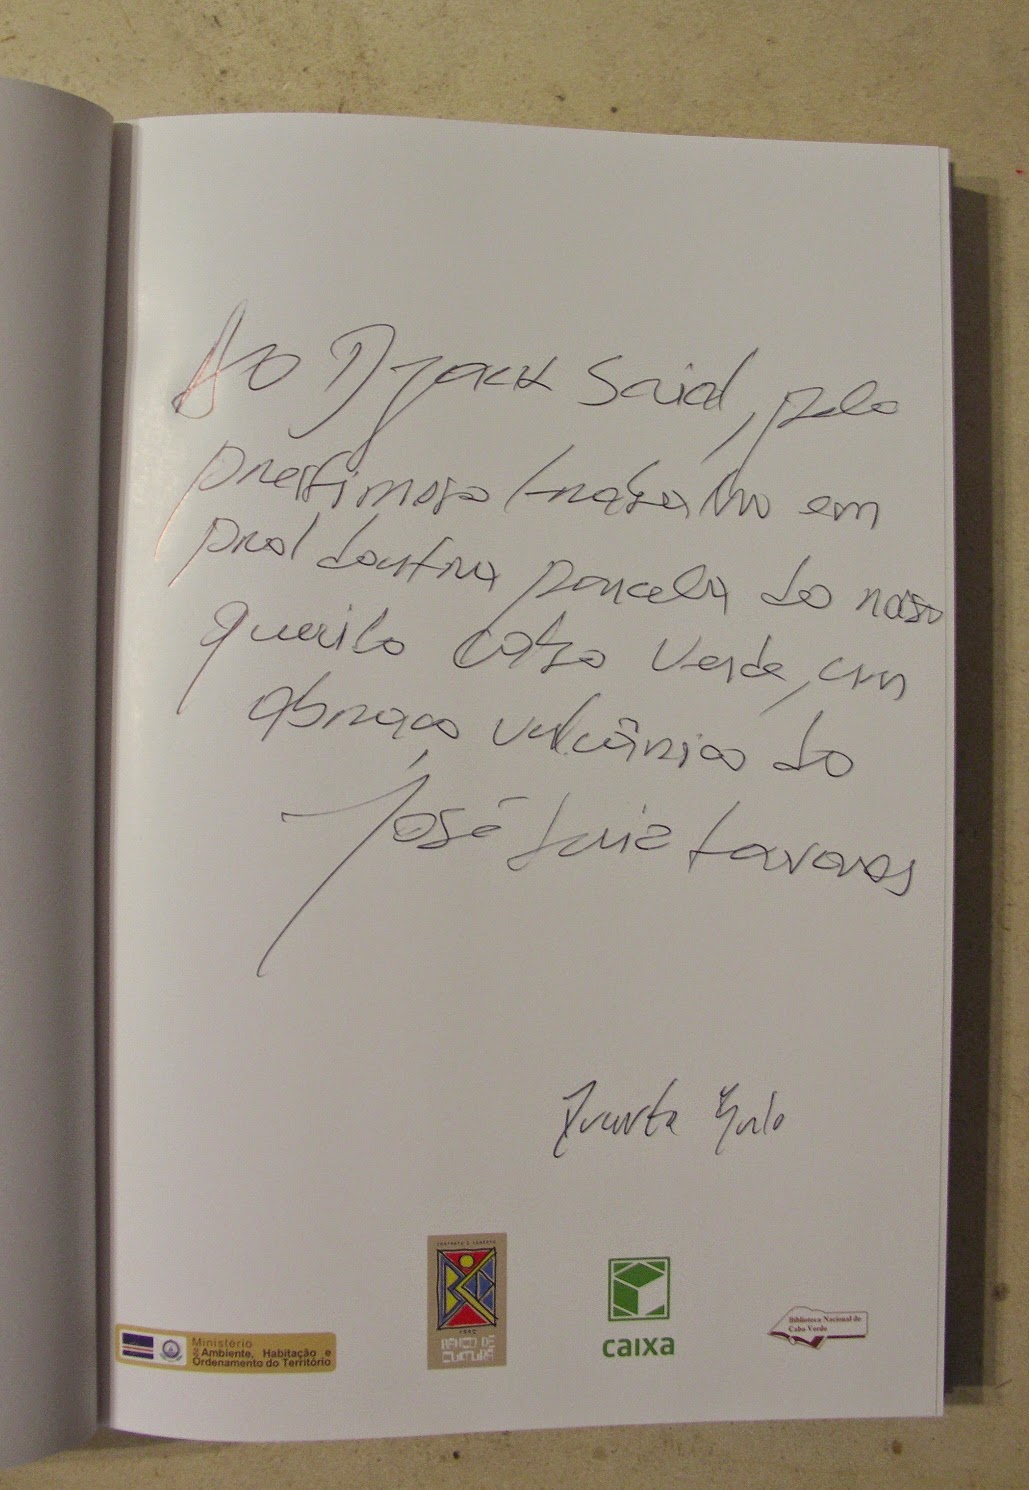 Ao Djack Said, pelo
prestimoso trabalho em
prol doutra parcela do nosso
querido Cabo Verde, um
abraço vulcânico do
José Luiz Tavares
BANCO DE
CULTURA
caixa
Biblioteca Nacional de
Cabo Verde
Ministério
do Ambiente, Habitação e
Ordenamento do Território